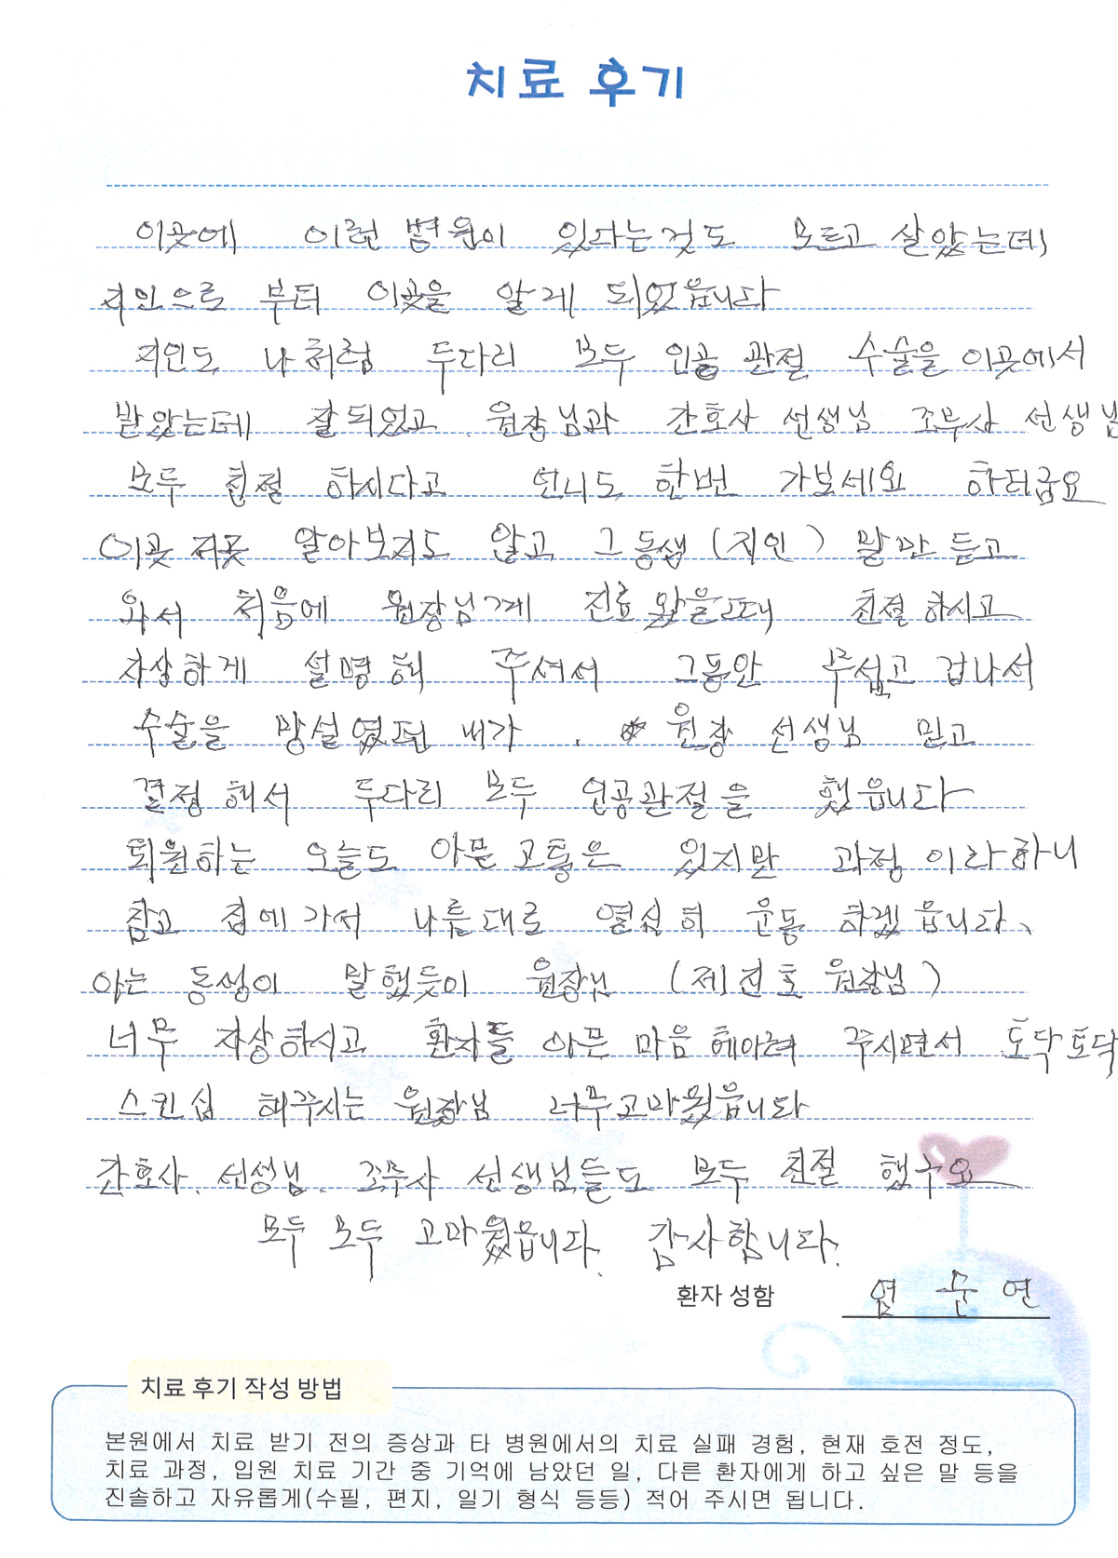 치료 후기
이곳에 이런 병원이 있다는것도 모르고 살았는데,
지인으로 부터 이곳을 알게 되었읍니다
지인도 나처럼 두다리 모두 인공 관절 수술을 이곳에서
받았는데 잘되었고 원장님과 간호사 선생님 조무사 선생님
모두 친절 하시다고 언니도 한번 가보세요 하더군요
이곳 저곳 알아보지도 않고 그 동생 (지인) 말만 듣고
와서 처음에 원장님께 진료 왔을때 친절 하시고
자상하게 설명해 주셔서 그동안 무섭고 겁나서
수술을 망설였던 내가 . 원장 선생님 믿고
결정해서 두다리 모두 인공관절을 했읍니다
퇴원하는 오늘도 아픈고통은 있지만 과정 이라하니
참고 집에가서 나름대로 열심히 운동 하겠읍니다.
아는 동생이 말했듯이 원장님 (제진호 원장님)
너무 자상하시고 환자들 아픈 마음 헤아려 주시면서 토닥토닥
스킨십 해주시는 원장님 너무고마웠읍니다
간호사. 선생님. 조무사 선생님들도 모두 친절 했구요
모두 모두 고마웠읍니다. 감사합니다.
환자 성함 엄 문 연
치료 후기 작성 방법
본원에서 치료 받기 전의 증상과 타 병원에서의 치료 실패 경험, 현재 호전 정도,
치료 과정, 입원 치료 기간 중 기억에 남았던 일, 다른 환자에게 하고 싶은 말 등을
진솔하고 자유롭게(수필, 편지, 일기 형식 등등) 적어 주시면 됩니다.